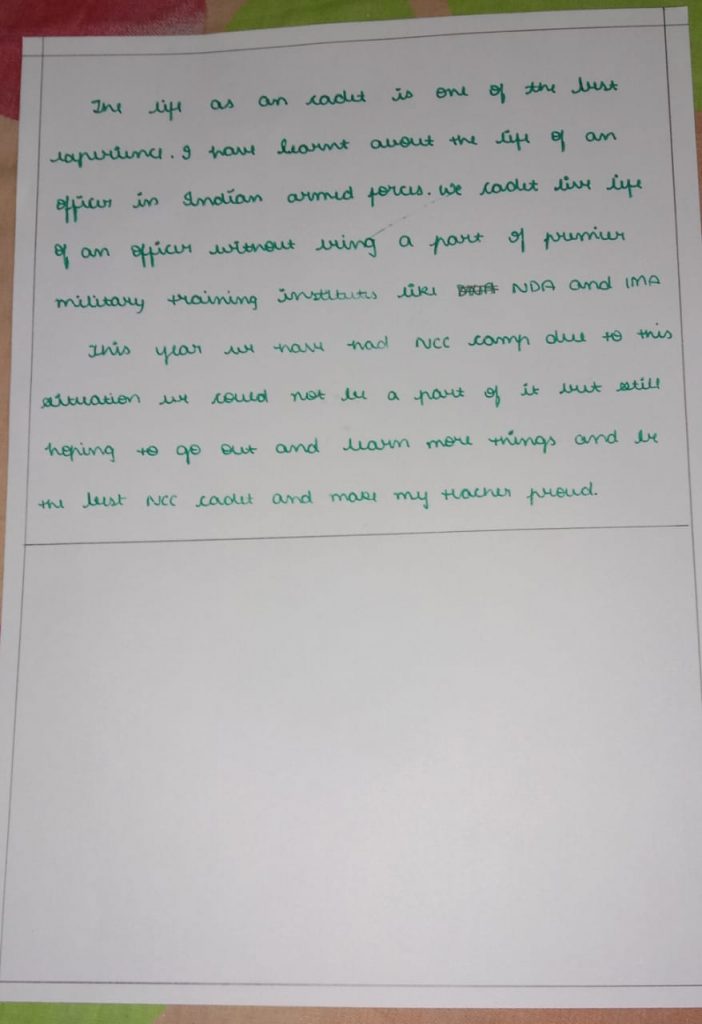 The life as an cadet is one of the best
experience. I have learnt about the life of an
officer in Indian armed forces. We cadet live life
of an officer without being a part of premier
military training institutes like NDA and IMA
This year we have had NCC camp due to this
situation we could not be a part of it but still
hoping to go out and learn more things and be
the best NCC cadet and make my teacher proud.